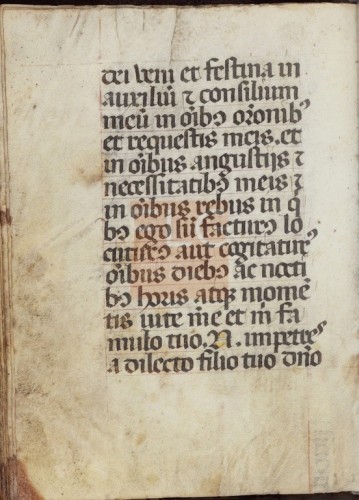 dei veni et festina in
auxiliũ ⁊ consilium
meũ in oĩbꝫ oronibꝰ
et requestis meis. et
in oĩbus angustijs ⁊
necessitatibꝫ meis ⁊
in oĩbus rebus in q̃
bꝫ ego sũ facturꝫ lo
cuturꝫ aut cogitaturꝰ
oĩbus diebꝫ ac nocti
bꝫ horis atqꝫ momẽ
tis vite mẽe et m̃ fa
mulo tuo. N. impetresꝰ
a dilecto filio tuo dño